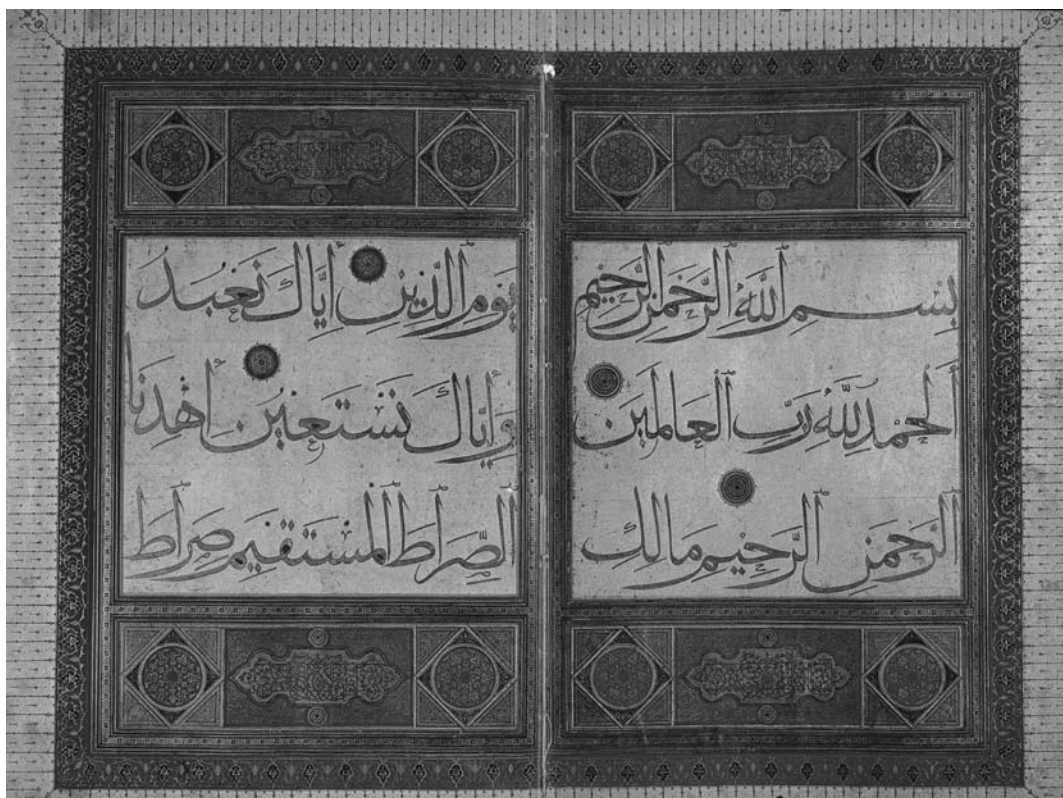 بِسْمِ اللَّهِ الرَّحْمَنِ الرَّحِيمِ
اَلْحَمْدُ لِلَّهِ رَبِّ الْعَالَمِينَ
الرَّحْمَنِ الرَّحِيمِ مَالِكِ
يَوْمِ الدِّينِ اِيَّاكَ نَعْبُدُ
وَاِيَّاكَ نَسْتَعِينُ اِهْدِنَا
الصِّرَاطَ الْمُسْتَقِيمَ صِرَاطَ